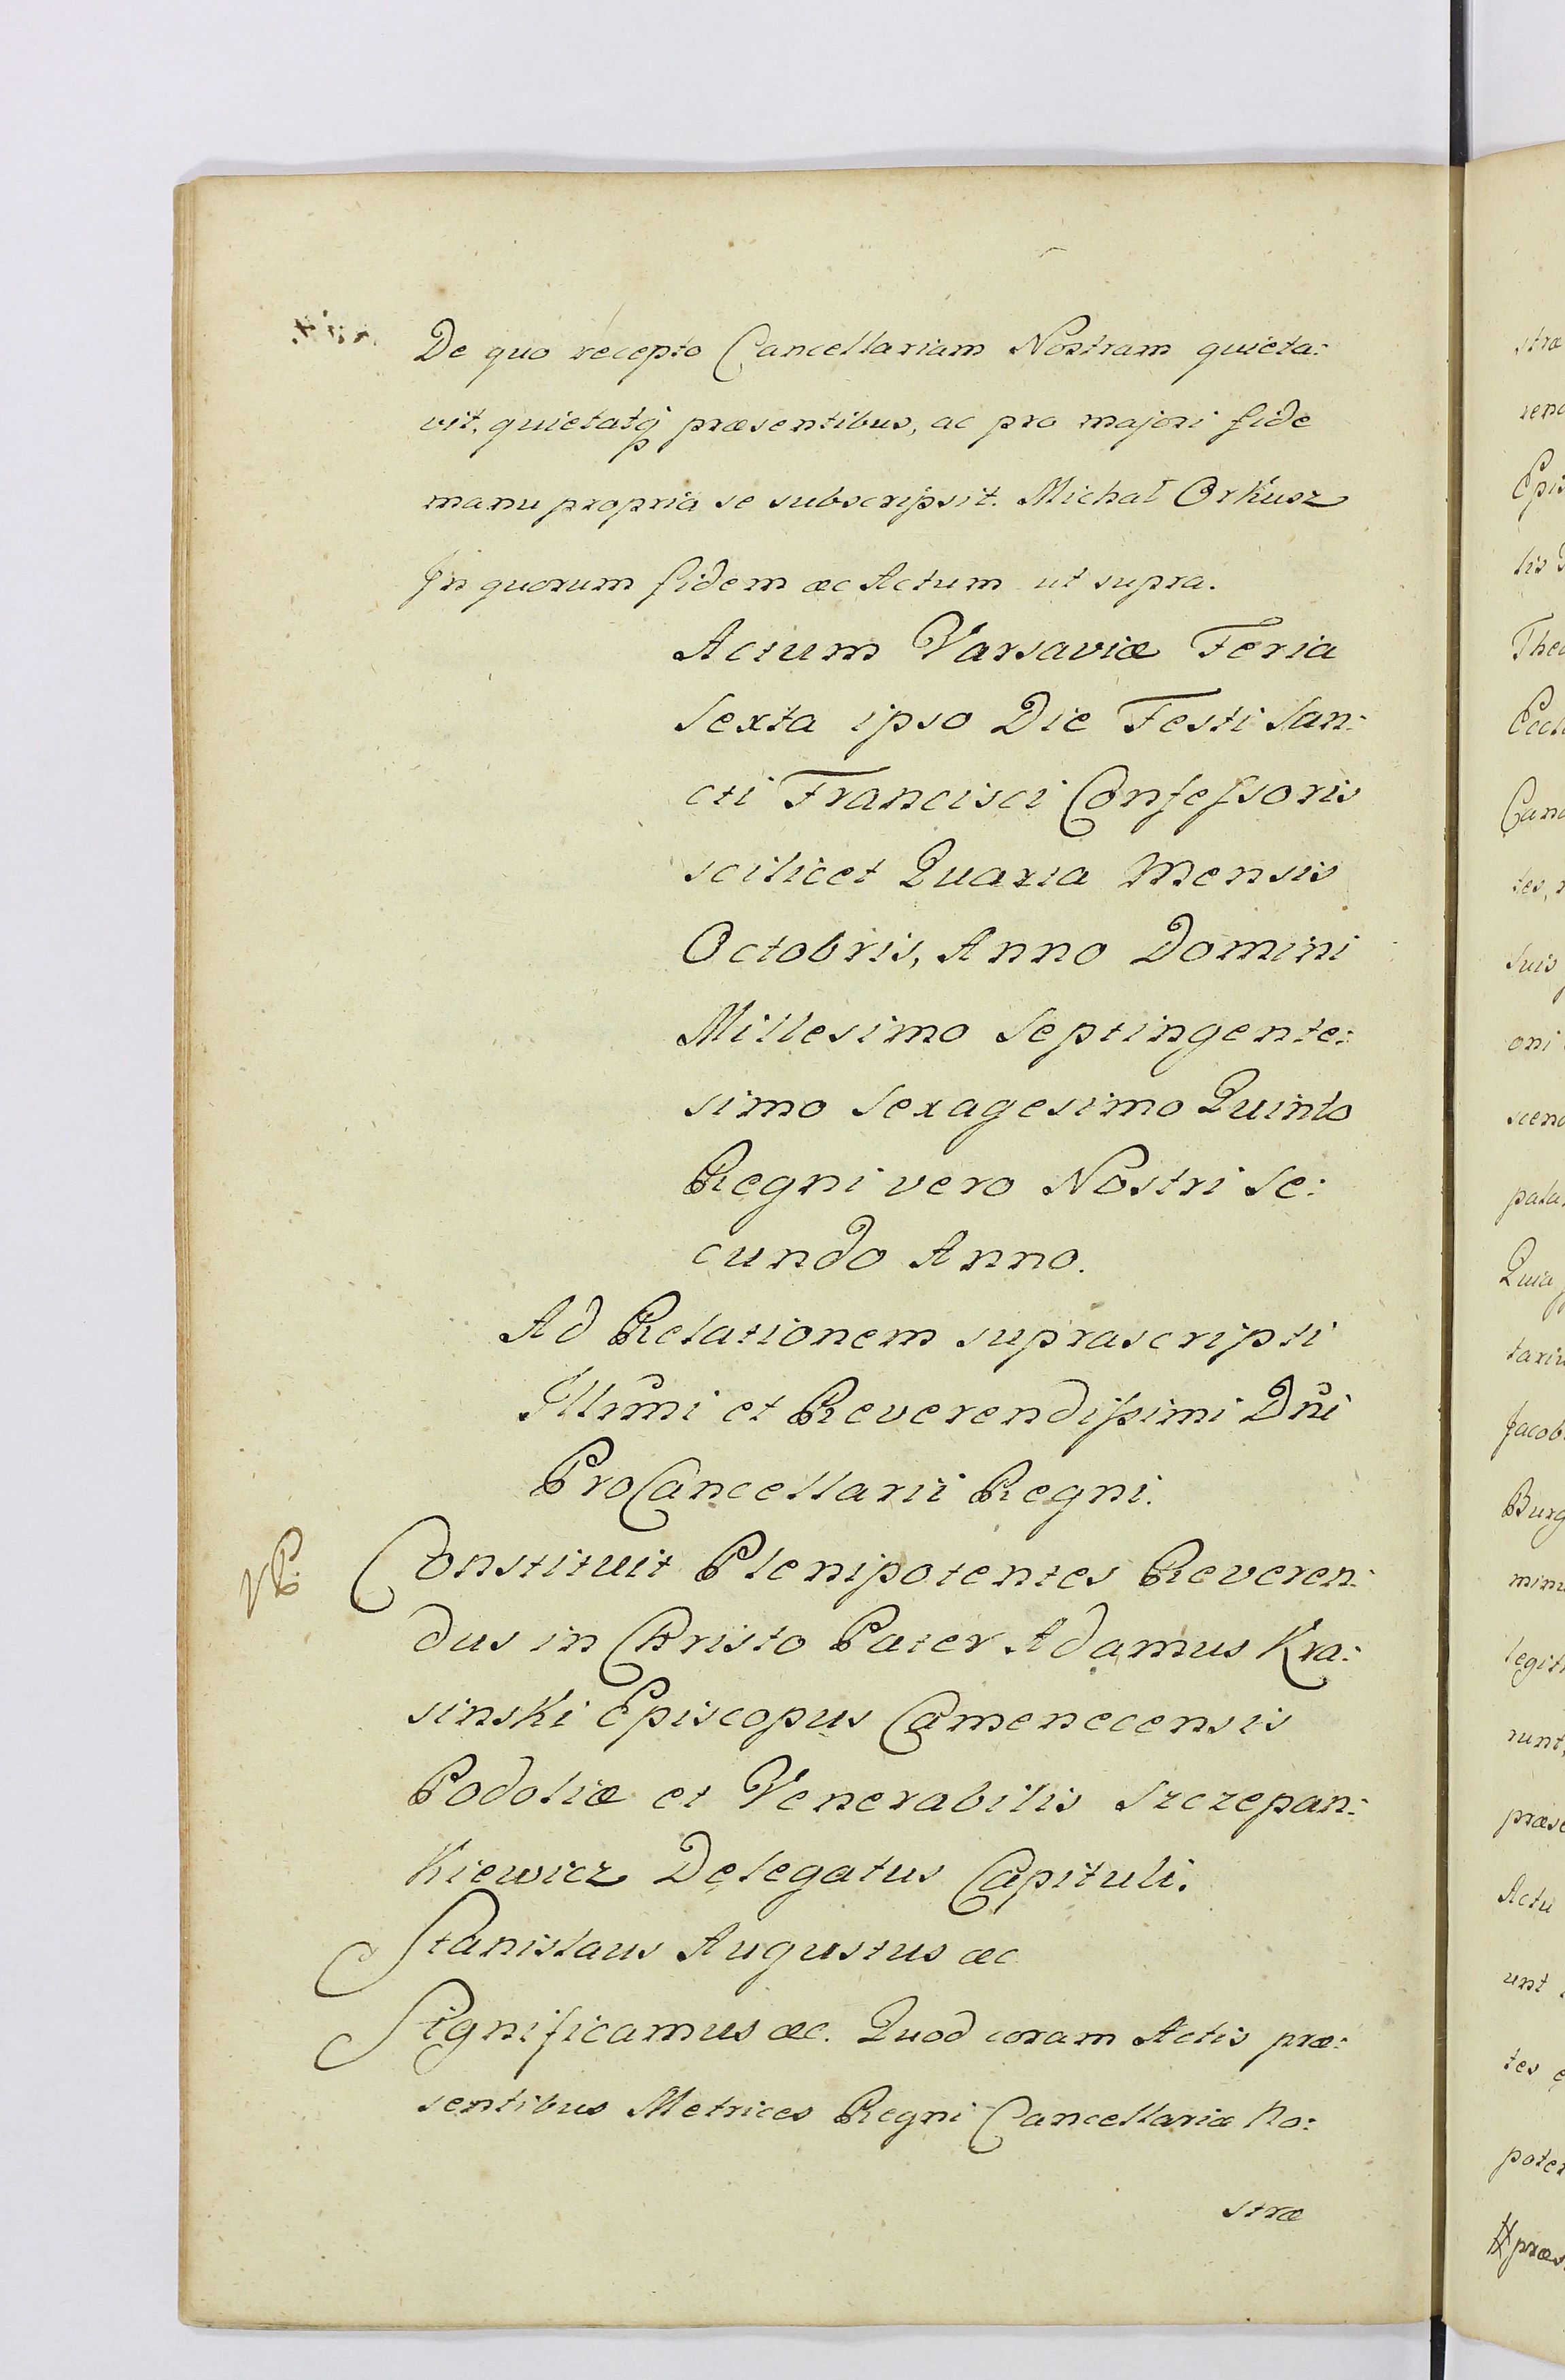 De quo recepto Cancellariam Nostram quieta:
vit, quietatq́ præsentibus, ac pro majori fide
manu propria se subscripsit. Michał Orkusz
In quorum fidem æc Actum ut supra.
Actum Varsaviæ Feria
Sexta ipso Die Festi San:
cti Francisci Confeſsoris
scilicet Quarta Mensis
Octobris, Anno Domini
Millesimo Septingente:
simo Sexagesimo Quinto
Regni vero Nostri Se:
cundo Anno.
Ad Relationem suprascripti
Illm̃i et Reverendiſsimi Dñi
ProCancellarii Regni.
Constituit Plenipotentes Reveren:
dus in Christo Pater Adamus Kra:
sinski Episcopus Camenecensis
Podoliæ et Venerabilis Szczepan:
Kiewicz Delegatus Capituli.
Stanislaus Augustus æc
Significamus æc. Quod coram Actis præ:
sentibus Metrices Regni Cancellariæ No:
stræ
stræ
Epis
lis
Thea
Eccl
Canc
tes,
suis
oni
scend
pata
Quia
tariu
Jacob
Burg
mini
legit
runt,
præse
Actu
unt
tes
poter
præs